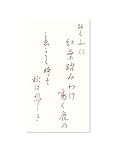 おく山に
紅葉踏みわけ
鳴く鹿の
声きく時そ
秋は悲しき